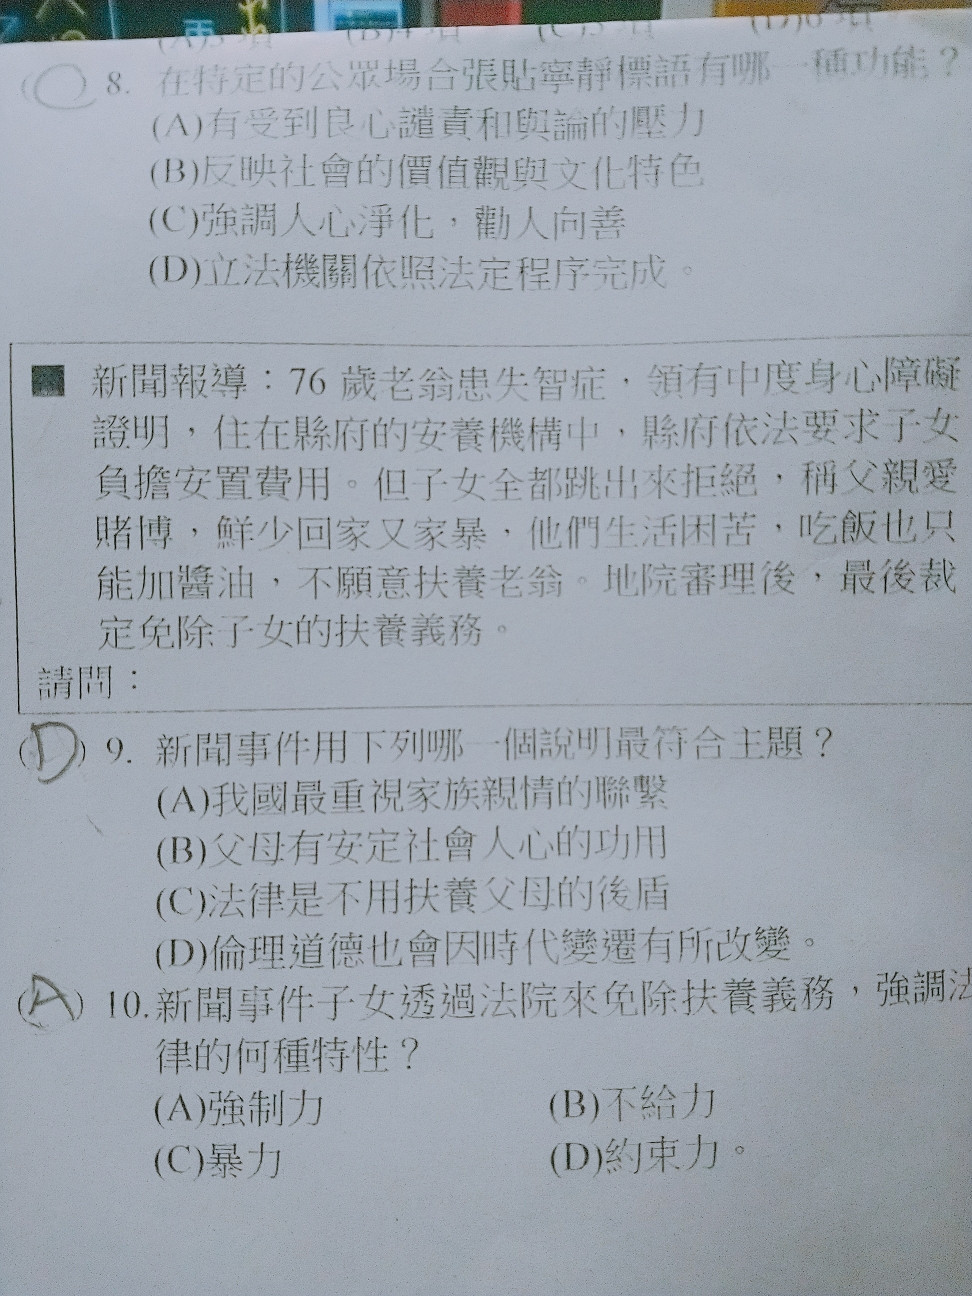 (A)3 項 (B)4 項 (C)5 項 (D)6 項
( ) 8. 在特定的公眾場合張貼寧靜標語有哪一種功能？
(A)有受到良心譴責和與論的壓力
(B)反映社會的價值觀與文化特色
(C)強調人心淨化，勸人向善
(D)立法機關依照法定程序完成。
■ 新聞報導：76 歲老翁患失智症，領有中度身心障礙
證明，住在縣府的安養機構中，縣府依法要求子女
負擔安置費用。但子女全都跳出來拒絕，稱父親愛
賭博，鮮少回家又家暴，他們生活困苦，吃飯也只
能加醬油，不願意扶養老翁。地院審理後，最後裁
定免除子女的扶養義務。
請問：
(D) 9. 新聞事件用下列哪一個說明最符合主題？
(A)我國最重視家族親情的聯繫
(B)父母有安定社會人心的功用
(C)法律是不用扶養父母的後盾
(D)倫理道德也會因時代變遷有所改變。
(A) 10.新聞事件子女透過法院來免除扶養義務，強調法
律的何種特性？
(A)強制力 (B)不給力
(C)暴力 (D)約束力。